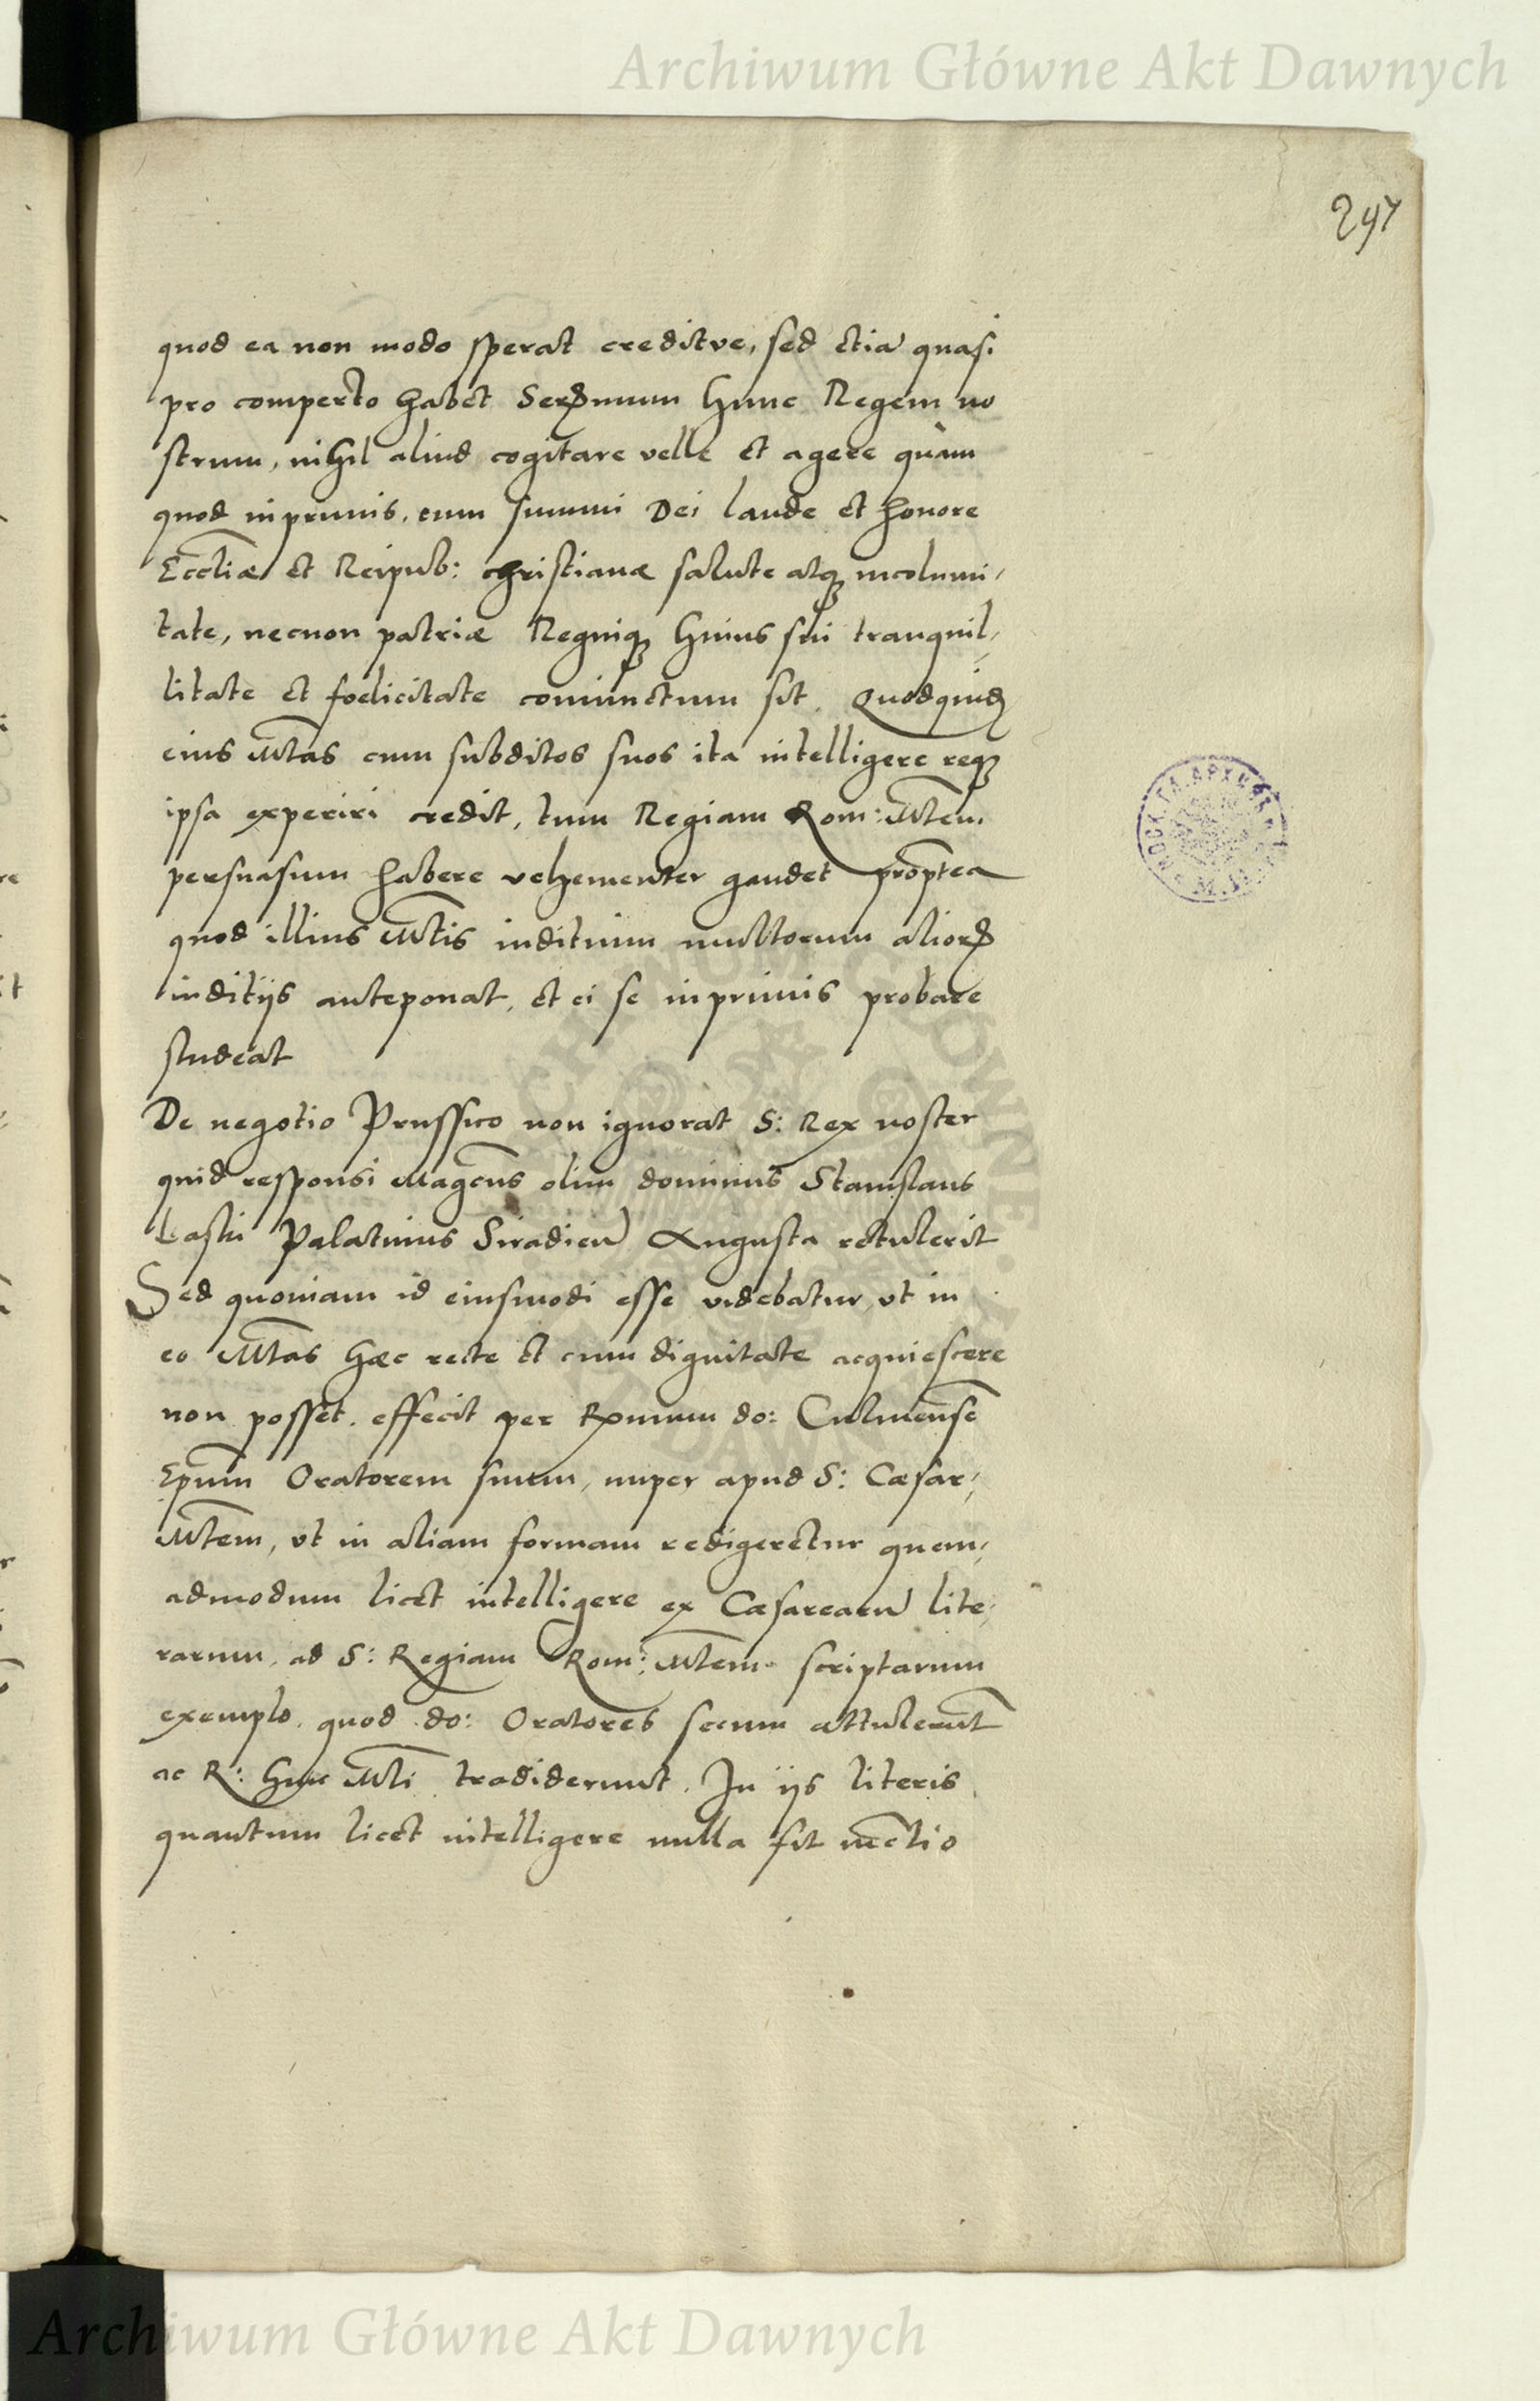 Archiwum Główne Akt Dawnych
297
quod ea non modo sperat creditve, sed etiã quasi
pro comperto habet Serm̃mum hunc Regem no
strum, nihil aliud cogitare velle et agere quàm
quod inprimis, cum summi Dei laude et honore
Eccliæ et Reipub: christianæ salute atq3 incolumi,
tate, necnon patriæ Regniq3 huius sui tranquil,
litate et foelicitate coniunctum sit. Quodquid
eius Mtas cum subditos suos ita intelligere req3
ipsa experiri credit, tum Regiam Rom: Mtem
persuasum habere vehementer gaudet proptea
quod illius Mtis inditium multorum alior
inditijs anteponat, et ei se inprimis probare
studeat
De negotio Prussico non ignorat S: Rex noster
quid responsi Magcus olim dominus Stanislaus
Laski Palatinus Siradień Augusta retulerit
Sed quoniam id eiusmodi esse videbatur, ut in
eo Mtas hæc recte et cum dignitate acquiescere
non posset. effecit per Rx̃mum do: Culmense
Epum Oratorem suum, nuper apud S: Cæsar,
Mtem, ut in aliam formam redigeretur quem,
admodum licet intelligere ex Cæsarearũ lite,
rarum, ad S: Regiam Rom: Mtem scriptarum
exemplo, quod do: Oratores secum attulerunt
ac R: huic Mti tradiderunt. In ijs literis
quantum licet intelligere nulla fit mẽtio
Archiwum Główne Akt Dawnych